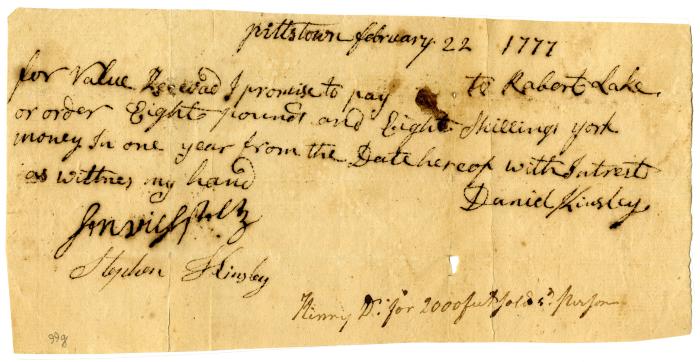 pittstown february 22 1777
for Value Receivad I promise to pay to Rabort Lake
or order Eight pounds and Eight Shillings york
money In one year from the Date hereof with Intrest
as wittnes my hand
Daniel Kinsley
Stephen Kinsley
Henry Dr. for 2000 feet
99g